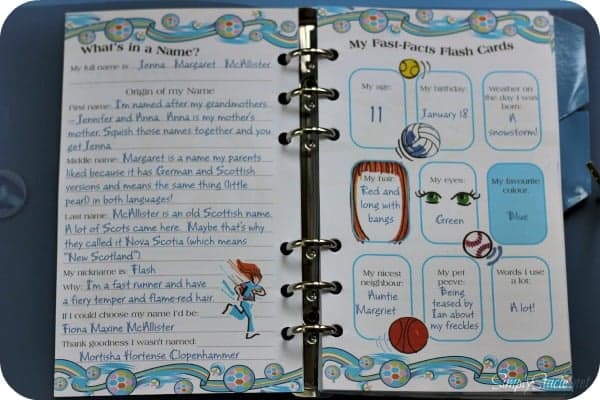 What's in a Name?
My full name is Jenna Margaret McAllister
Origin of my Name
First name: I'm named after my grandmothers
- Jennifer and Anna. Anna is my mother's
mother. Squish those names together and you
get Jenna.
Middle name: Margaret is a name my parents
liked because it has German and Scottish
versions and means the same thing (little
pearl) in both languages!
Last name: McAllister is an old Scottish name.
A lot of Scots came here. Maybe that's why
they called it Nova Scotia (which means
"New Scotland")
My nickname is: Flash
Why: I'm a fast runner and have
a fiery temper and flame-red hair.
If I could choose my name I'd be:
Fiona Maxine McAllister
Thank goodness I wasn't named:
Mortisha Hortense Clopenhammer
My Fast-Facts Flash Cards
My age:
11
My birthday:
January 18
Weather on
the day I was
born:
A
snowstorm!
My hair:
Red and
long with
bangs
My eyes:
Green
My favourite
colour:
Blue
My nicest
neighbour:
Auntie
Margriet
My pet
peeve:
Being
teased by
Ian about
my freckles
Words I use
a lot:
A lot!
SimplyStacie.net